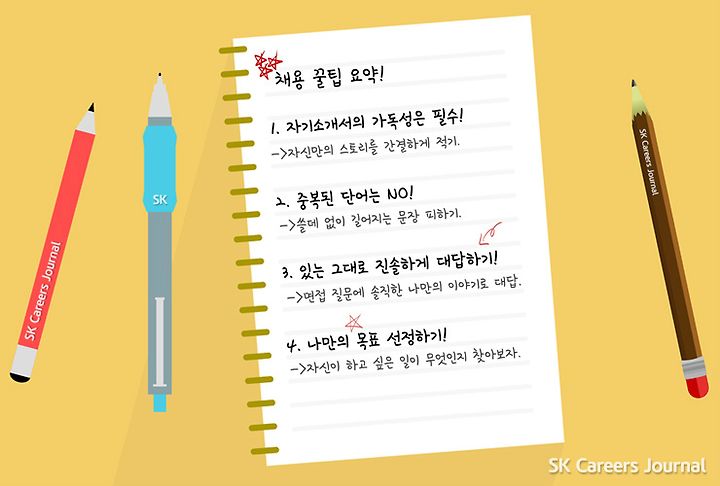 채용 꿀팁 요약!
1. 자기소개서의 가독성은 필수!
->자신만의 스토리를 간결하게 적기.
2. 중복된 단어는 NO!
->쓸데 없이 길어지는 문장 피하기.
3. 있는 그대로 진솔하게 대답하기!
->면접 질문에 솔직한 나만의 이야기로 대답.
4. 나만의 목표 선정하기!
->자신이 하고 싶은 일이 무엇인지 찾아보자.
SK Careers Journal
SK
SK Careers Journal
SK Careers Journal